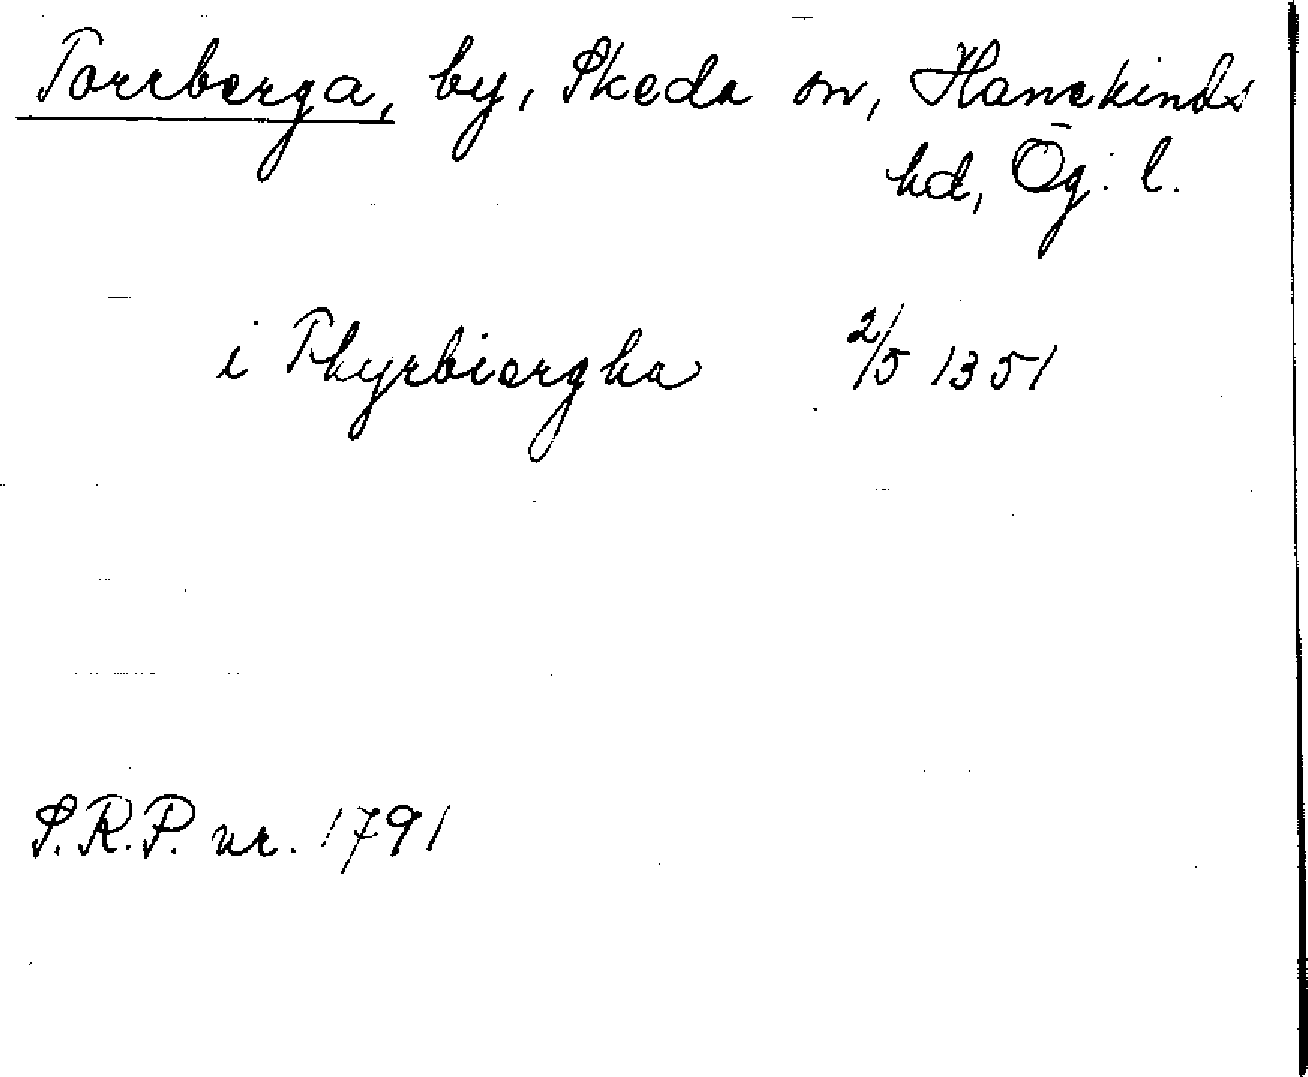 Torrberga, by, Skeda sn, Hanekinds
hd, Ög. l.
i Thyrbiergha 2/5 1351
S.R.P. nr. 1791